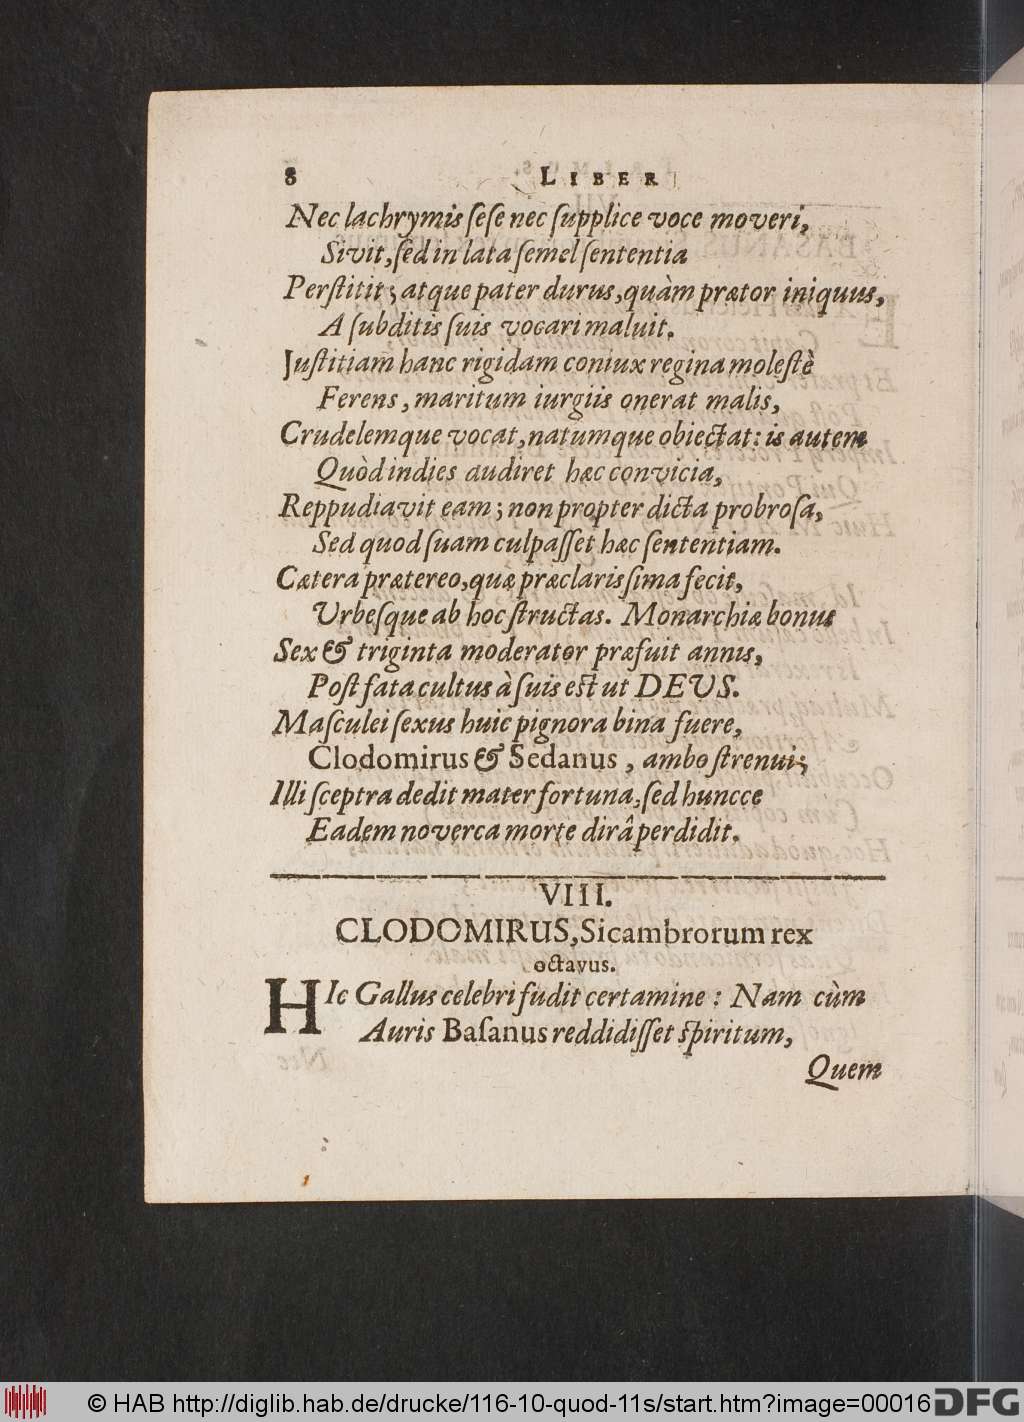 8 LIBER
Nec lachrymis ſeſe nec ſupplice voce moveri,
Sivit, ſed in lata ſemel ſententia
Perſtitit; atque pater durus, quàm prætor iniquus,
A ſubditis ſuis vocari maluit.
Juſtitiam hanc rigidam coniux regina moleſtè
Ferens, maritum iurgiis onerat malis,
Crudelemque vocat, natumque obiectat: is autem
Quòd indies audiret hæc convicia,
Reppudiavit eam; non propter dicta probroſa,
Sed quod ſuam culpaſſet hæc ſententiam.
Cætera prætereo, quæ præclarisſima fecit,
Urbeſque ab hoc ſtructas. Monarchiæ bonus
Sex & triginta moderator præfuit annis,
Poſt fata cultus à ſuis eſt ut DEUS.
Maſculei ſexus huic pignora bina fuere,
Clodomirus & Sedanus, ambo ſtrenui;
Illi ſceptra dedit mater fortuna, ſed huncce
Eadem noverca morte dirâ perdidit.
VIII.
CLODOMIRUS, Sicambrorum rex
octavus.
HIc Gallus celebri fudit certamine: Nam cùm
Auris Baſanus reddidiſſet ſpiritum,
Quem
© HAB http://diglib.hab.de/drucke/116-10-quod-11s/start.htm?image=00016 DFG